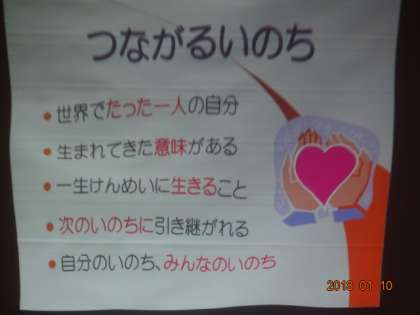 つながるいのち
●世界でたった一人の自分
●生まれてきた意味がある
●一生けんめいに生きること
●次のいのちに引き継がれる
●自分のいのち、みんなのいのち
2018 01 10